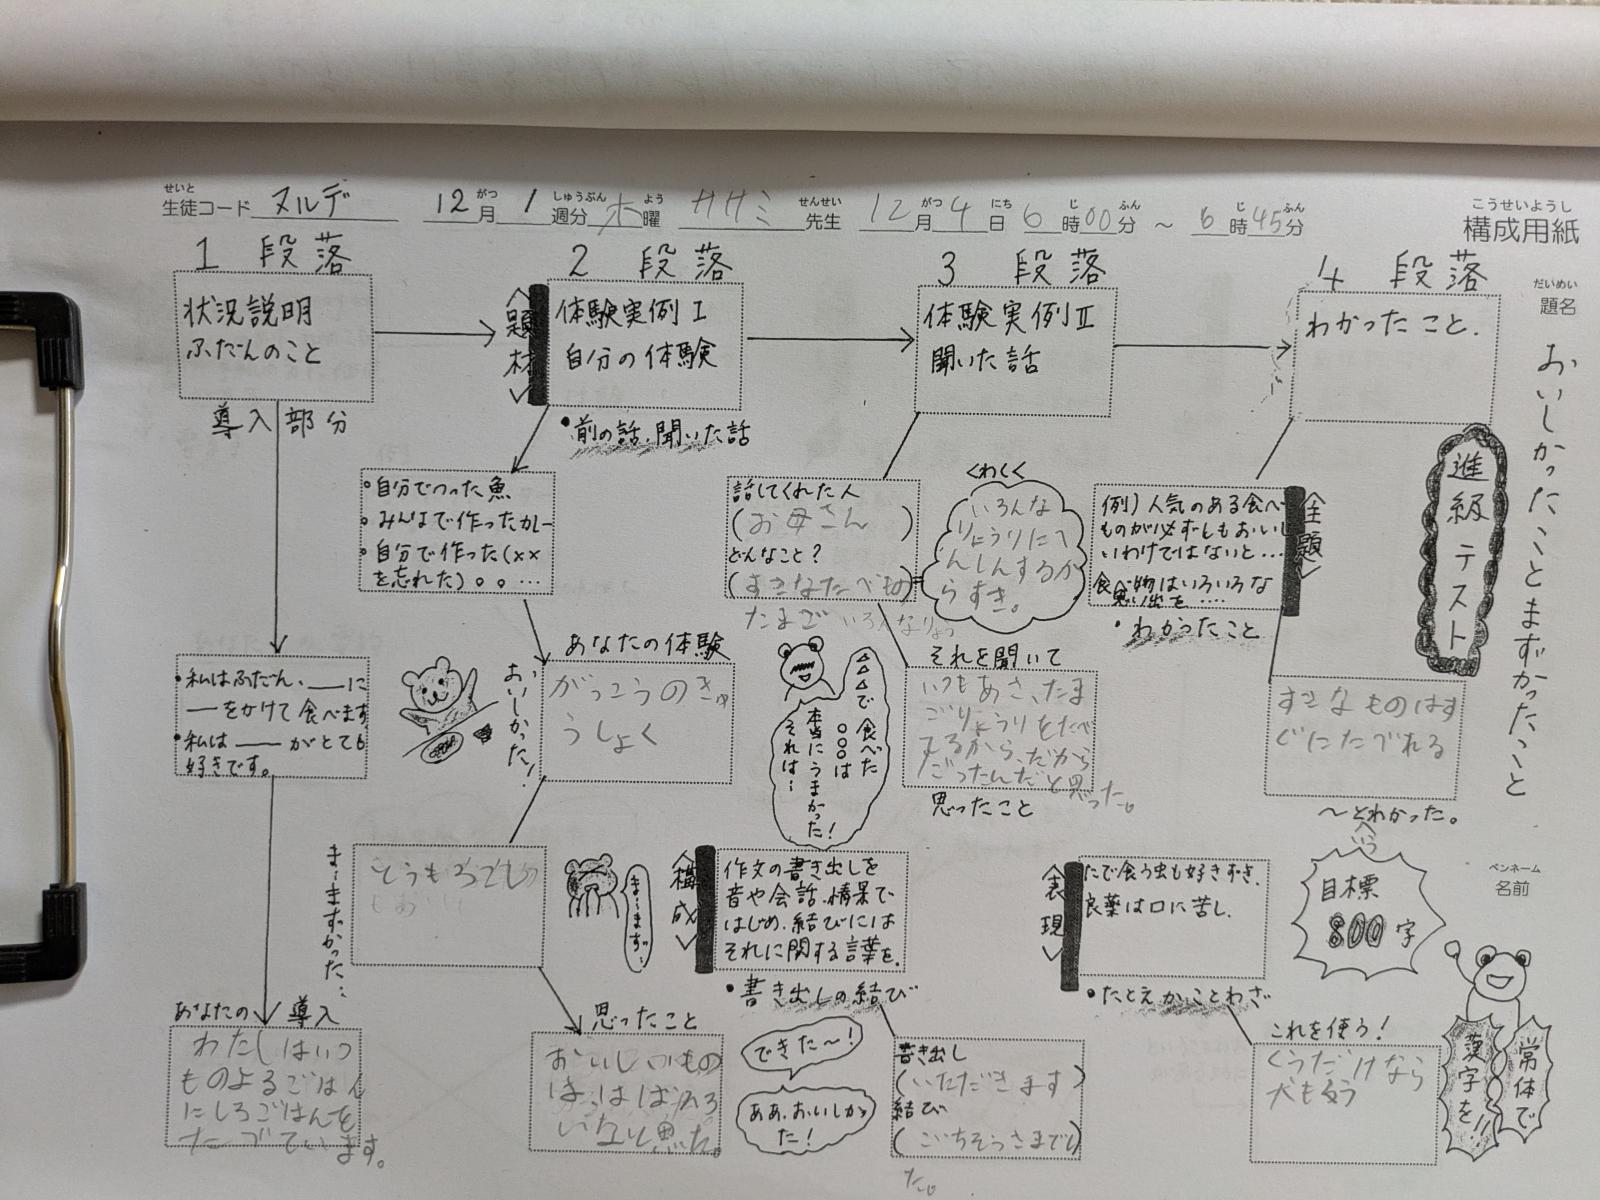 せいと
生徒コード ヌルデ 12月 1週分 木曜 ササミ先生 12月4日6時00分～6時45分
がつ しゅうぶん よう せんせい がつ にち じ ふん じ ふん
こうせいようし
構成用紙
だいめい
題名
おいしかったこととまずかったこと
進級テスト
ペンネーム
名前
1 段落
状況説明
ふだんのこと
導入部分
・私はふだん、＿＿に
＿をかけて食べます
・私は＿＿がとても
好きです。
あなたの導入
わたしはいつ
ものよるごはん
にしろごはんを
たべています。
2 段落
〈題材〉
体験実例Ⅰ
自分の体験
・前の話、聞いた話
・自分でつった魚
・みんなで作ったカレー
・自分で作った(××
を忘れた)。。…
あなたの体験
おいしかった!
がっこうのきゅ
うしょく
まーまずかった…
とうもろこし
まーまず…
思ったこと
おいしいもの
3 段落
体験実例Ⅱ
聞いた話
話してくれた人
(お母さん)
どんなこと?
(すきなたべもの)
たまご いろんなりょう
くわしく
いろんな
りょうりにへ
んしんするか
らすき。
それを聞いて
いつもあさ、たま
ごりょうりをたべ
てるから、だから
だったんだと思った。
思ったこと
△△△で食べた
○○○は
本当にうまかった!
それは…
〈構成〉
作文の書き出しを
音や会話、情景で
はじめ、結びには
それに関する言葉を。
・書き出しの結び
できた～!
ああ、おいしかっ
た!
書き出し
(いただきます)
結び
(ごちそうさまでし
た。
4 段落
わかったこと.
〈主題〉
例)人気のある食べ
ものが必ずしもおいし
いわけではないと…
食べ物はいろいろな
思い出を……
・わかったこと
すきなものはす
ぐにたべれる
～とわかった。
へいう
〈表現〉
たで食う虫も好きずき.
良薬は口に苦し.
・たとえかことわざ
これを使う!
くうだけなら
犬も食う
目標
800字
常体で
漢字を!!